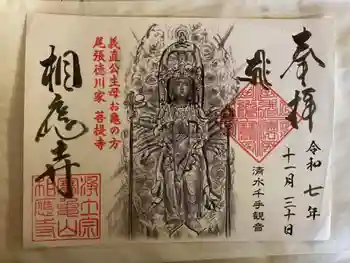 奉拝
令和七年
十一月三十日
清水千手観音
義直公生母お亀の方
尾張徳川家 菩提寺
相應寺
浄土宗
寳亀山
相應寺